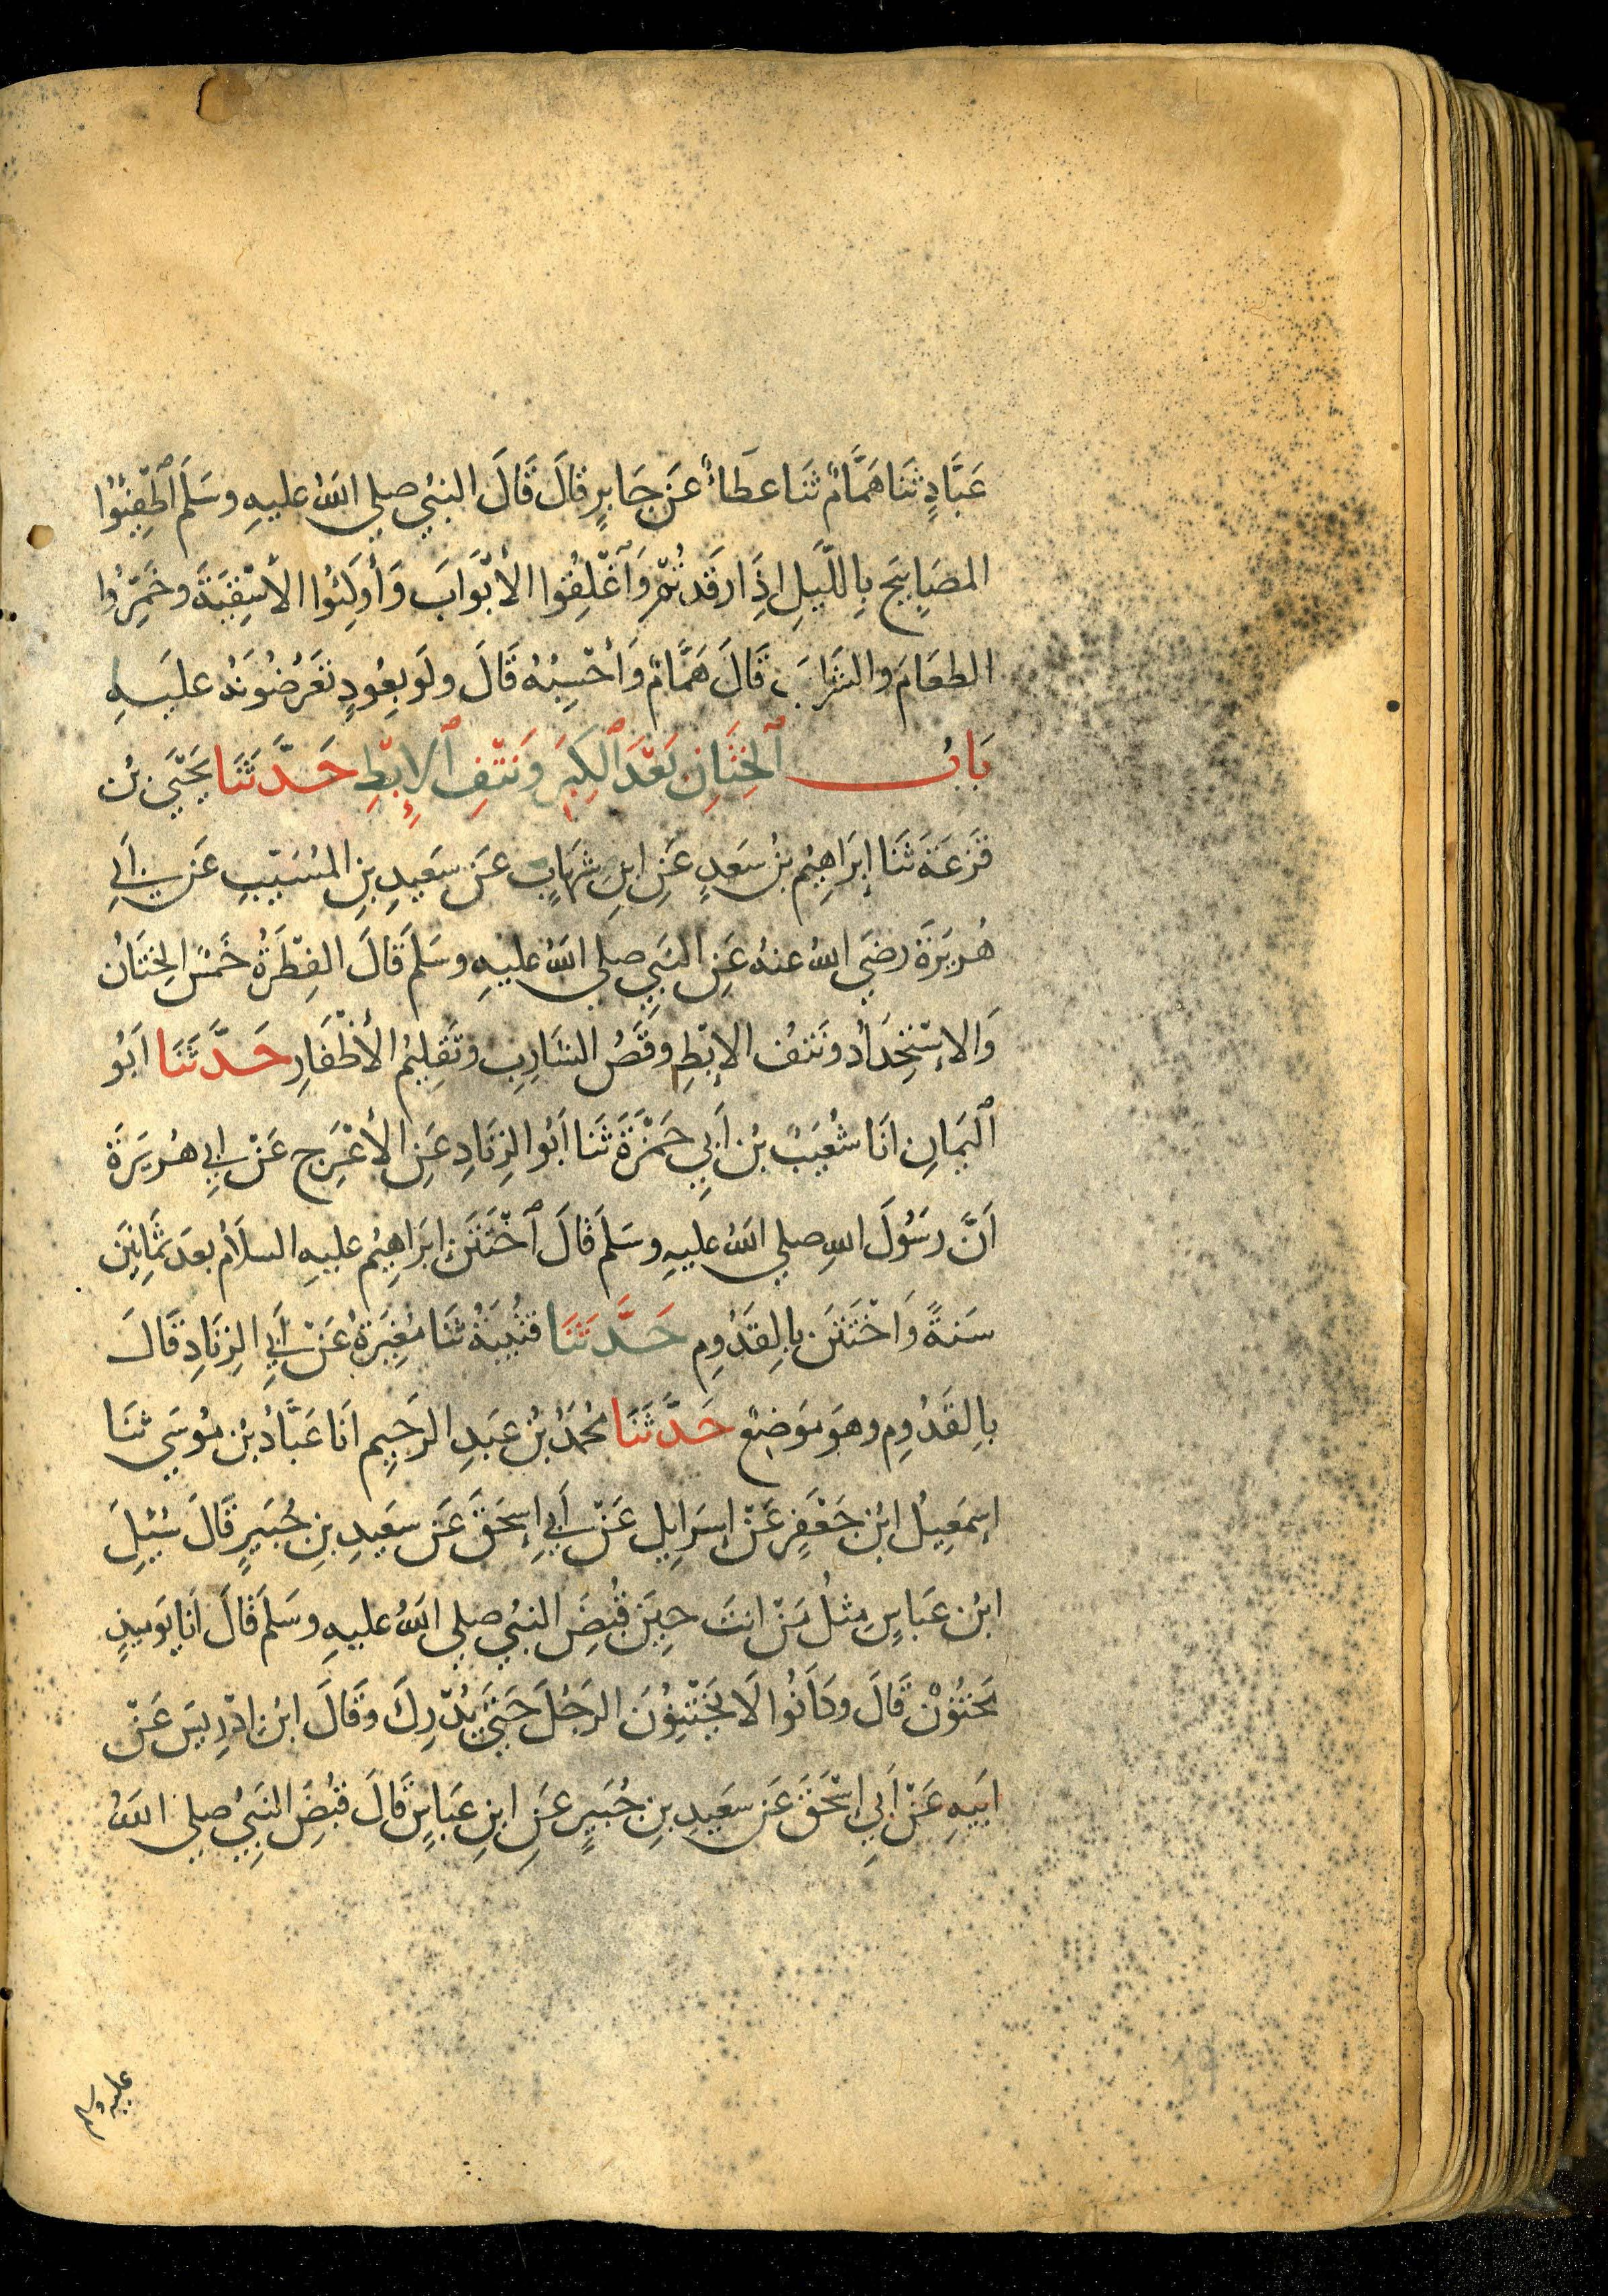 عَبَّادٍ ثَنَا هَمَّامٌ ثَنَا عَطَاءٌ عَنْ جَابِرٍ قَالَ قَالَ النبيُ صلي اللهُ عليهِ وسَلَم اَطْفِئُوا
المصَابِيحَ بِاللَّيلِ اِذَا رقَدتُم وَاَغْلِقُوا الأَبْوَابَ وَأَوكِئُوا الأَسْقِيَةَ وخَمِّرُوا
الطعَامَ والشرَابَ قَالَ هَمَّامٌ وَأَحْسِبُهُ قَالَ ولَو بِعُودٍ تَعَرُضُونَهُ عليَهِ
بَابُ الخِتَانِ بَعْدَ الكِبَرِ وَنَتْفِ الإِبْطِ حَدَّثَنَا يَحْيَي بْن
قَزعَةَ ثَنَا إِبرَاهِيمُ بنُ سَعدٍ عَنِ ابنِ شِهَابٍ عَن سَعيدِ بنِ المُسَيّبِ عَن اَبِي
هُريَرَةَ رضَي اللهُ عنهُ عَنِ النَبِي صلي اللهُ عليهِ وسَلَم قَالَ الفِطْرَةُ خَمْسٌ الخِتَانُ
وَالاسْتِحْدَادُ ونَتفُ الاِبْطِ وقَصُ الشَارِبِ وتَقلِيمُ الأَظْفَارِ حَدَّثَنَا اَبُو
اليَمَانِ انَا شُعَيبُ بْن اَبِي حَمْزَةَ ثَنا اَبُو الزِنَادِ عَنِ الأَعْرَجِ عَنْ ابِي هُريَرَةَ
اَنَّ رسُولَ اللهِ صلي اللهُ عليهِ وسَلَم قَالَ اخْتَتَنَ ابرَاهِيمُ عليهِ السلاَمُ بعدَ ثمَانِينَ
سَنةً وَاخْتَتَنَ بالِقدُوِمِ حَدَّثَنَا قتُيبَةُ ثَنَا مُغِيَرةُ عَنْ اَبِي الزِنَادِ قَالَ
بالِقَدُومِ وهوَ مَوَضِعٌ حَدَّثَنَا مُحَمَدُ بْنُ عَبدِ الرَحِيمِ انَا عَبَّادُ بْن مُوسَي ثنَا
اِسمَعِيلُ ابْن جَعْفَرٍ عَنْ اِسرَاِيل عَنْ اَبِي اِسحَقَ عَن سعَيدِ بنِ جُبَيرٍ قَالَ سُئِلَ
ابْن عَباسٍ مِثلُ مَنْ انتَ حِينَ قُبِضَ النبُي صلي اللهُ عليهِ وسَلَم قَالَ اَنَا يَومَيذٍ
مَختُوْن قَالَ وكَانُوا لاَ يَخْتِنُونَ الرَجُلَ حَتَي يُدْرِكَ وقَالَ ابْن اِدْرِيسَ عَنْ
ابَيهِ عَنْ اَبي اسْحَقَ عَن سعَيدِ بنِ جُبَيرٍ عَنِ ابنِ عبَاسٍ قَالَ قبُضَ النَبِيُ صلي اللهُ
عليه وسلم